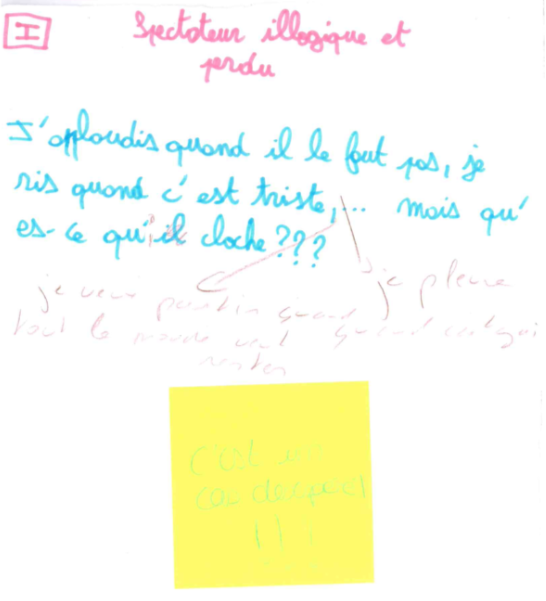 I
Spectateur illogique et
perdu
J'applaudis quand il le faut pas, je
ris quand c'est triste,... mais qu'
es-ce qu'il cloche ???
je pleure
je veux partir quand
tout le monde veut
rester
quand c'est gai
c'est un
cas
!!